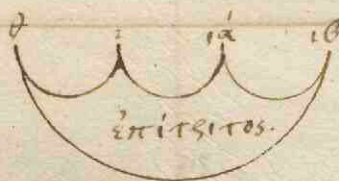 θ ι ιά ιϐ
ἐπίτριτος.